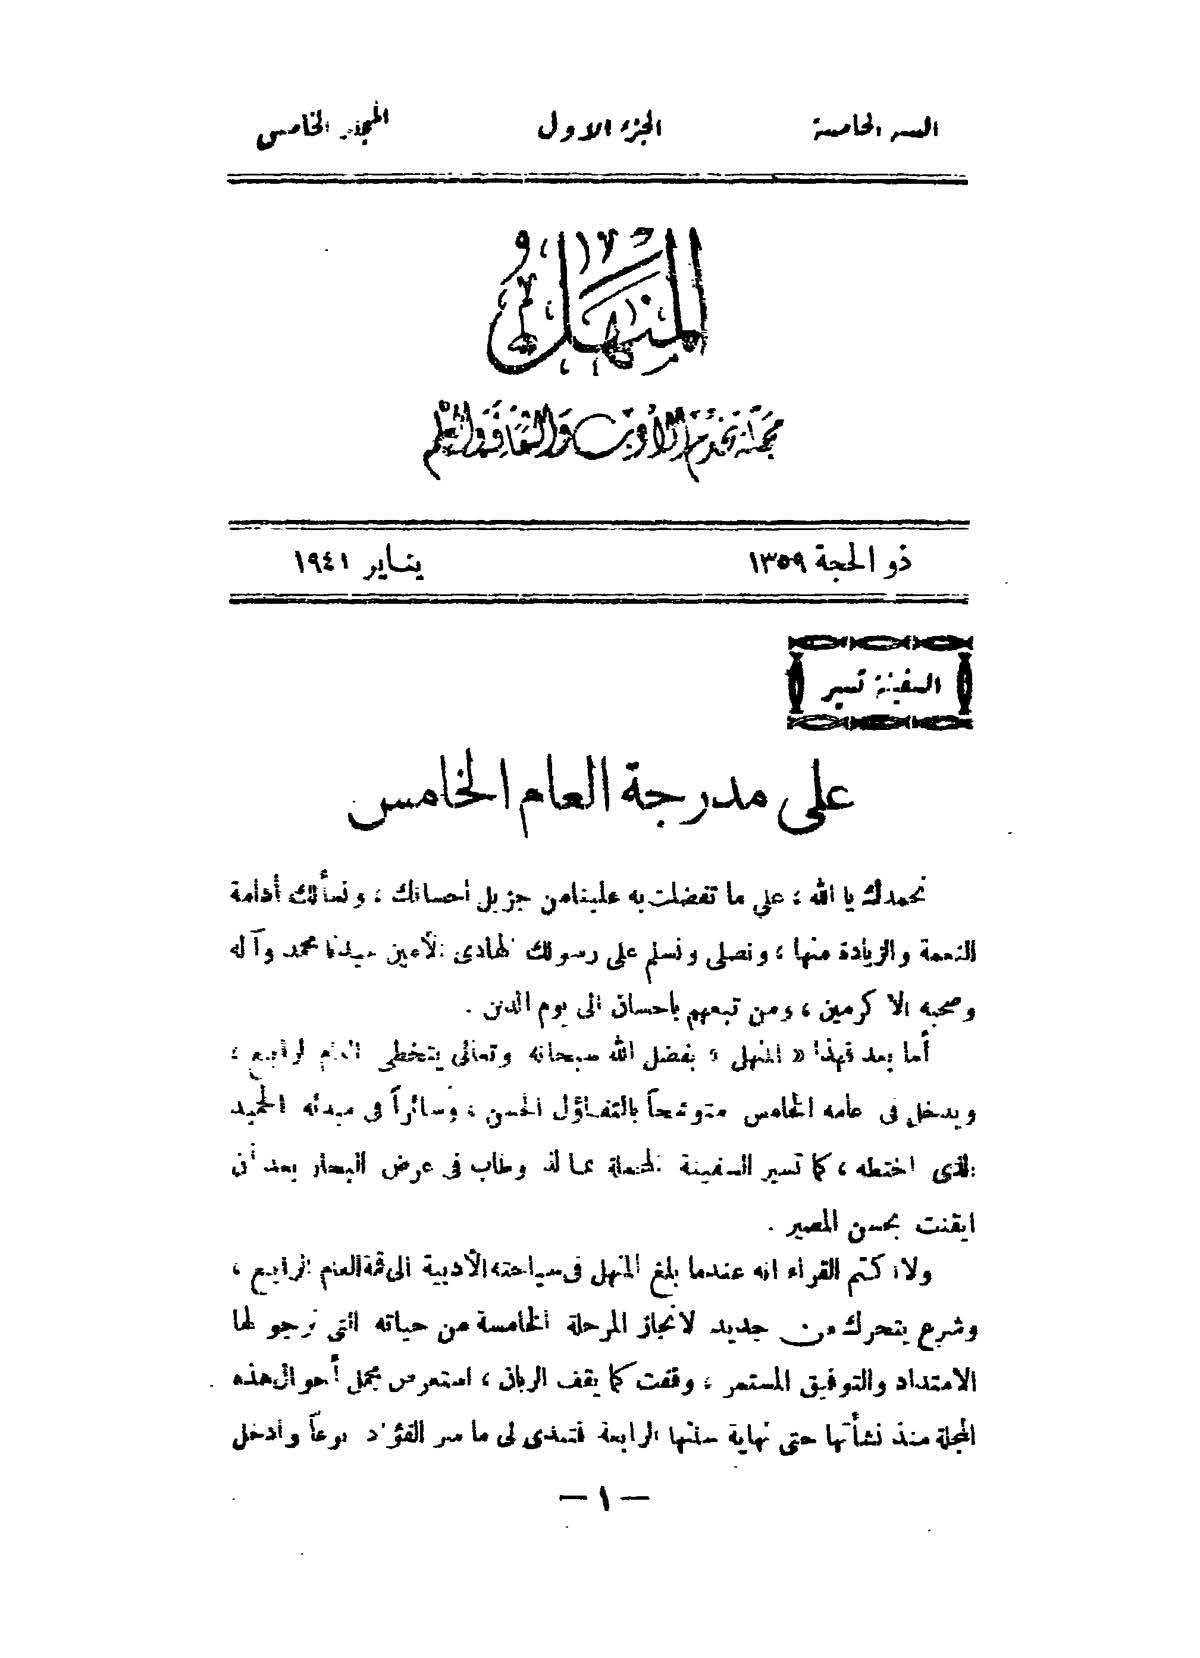 السنة الخامسة
الجزء الاول
المجلد الخامس
المنهل
مجلة تخدم الأدب والثقافة والعلم
ذو الحجة ١٣٥٩
ينـاير ١٩٤١
السفينة تسير
على مدرجة العام الخامس
نحمدك يا الله ، على ما تفضلت به علينا من جزيل احسانك ، ونسألك أدامة
النعمة والزيادة منها ، ونصلى ونسلم على رسولك الهادى الأمين سيدنا محمد وآله
وصحبه الاكرمين ، ومن تبعهم باحسان الى يوم الدين .
أما بعد فهذا « المنهل » بفضل الله سبحانه وتعالى يتخطى العام الرابع ،
ويدخل فى عامه الخامس متوشحاً بالتفاؤل الحسن ، وسائراً فى مبدئه الحميد
الذى اختطه ، كما تسير السفينة المحملة بما لذ وطاب فى عرض البحار بعد أن
ايقنت بحسن المصير .
ولا اكتم القراء انه عندما بلغ المنهل فى سياحته الأدبية الى قمة العام الرابع ،
وشرع يتحرك من جديد لانجاز المرحلة الخامسة من حياته التى نرجو لها
الامتداد والتوفيق المستمر ، وقفت كما يقف الربان ، استعرض مجمل أحوال هذه
المجلة منذ نشأتها حتى نهاية سنتها الرابعة فتبدى لى ما سر الفؤاد نوعاً وأدخل
— ١ —